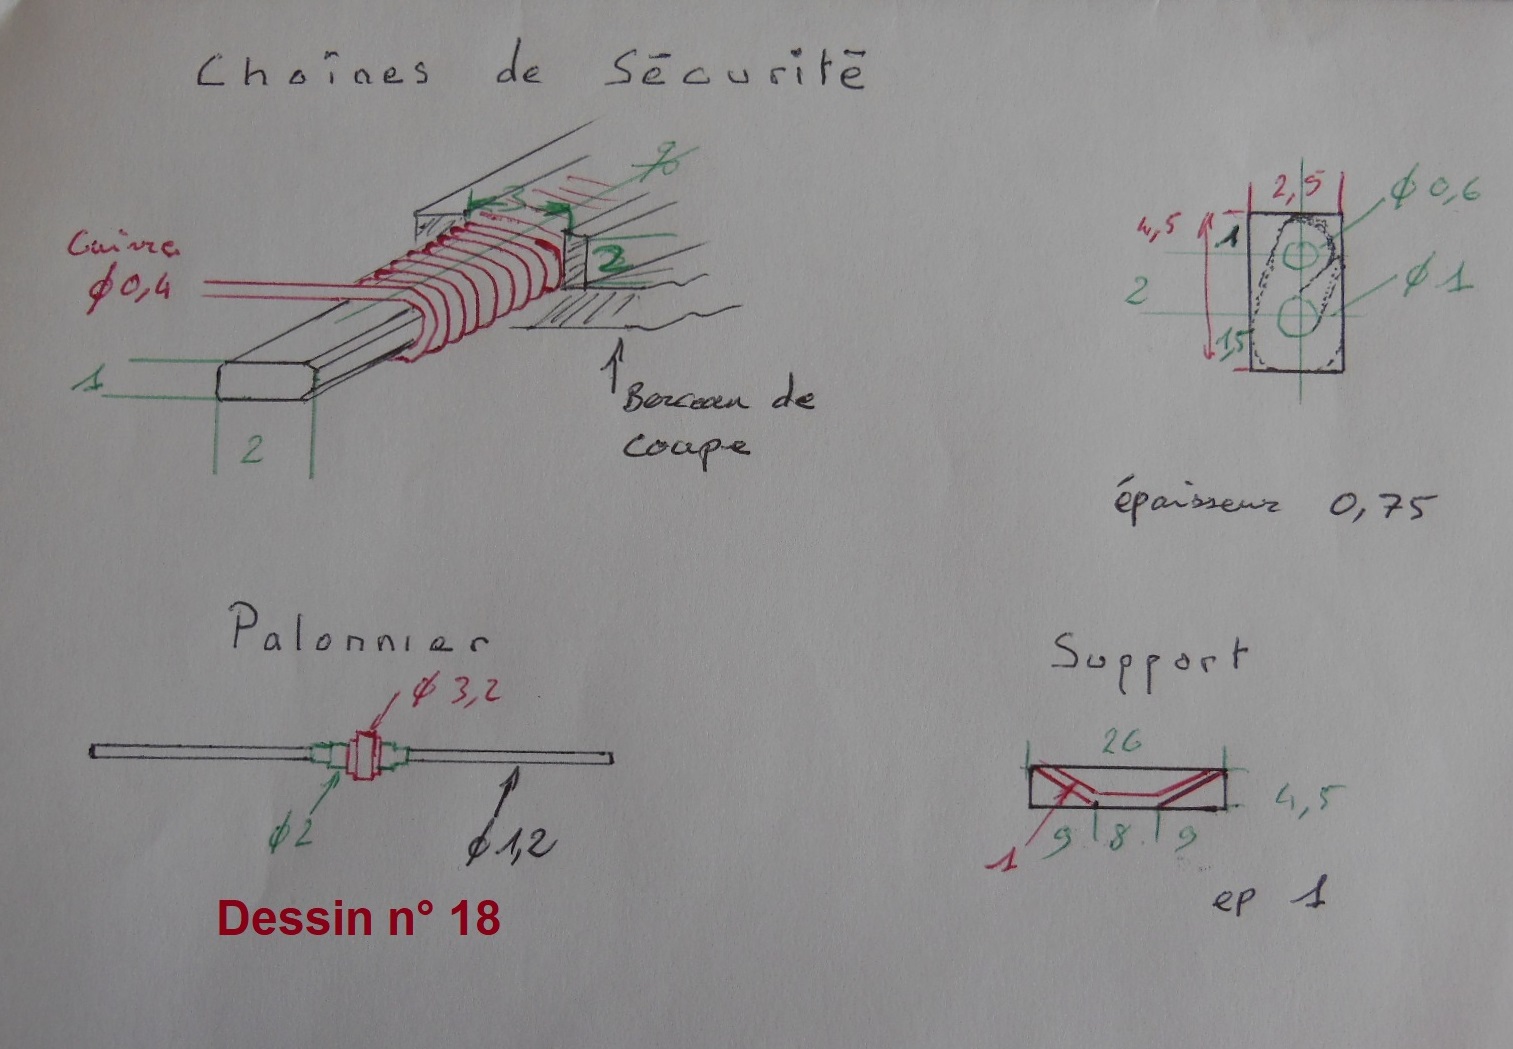 Chaînes de Sécurité
3
2
Cuivre
ϕ0,4
1
2
Berceau de
coupe
2,5
ϕ 0,6
4,5
1
2
ϕ 1
1,5
épaisseur 0,75
Palonnier
ϕ 3,2
ϕ2
ϕ1,2
Support
26
4,5
9 8 9
1
ep 1
Dessin n° 18